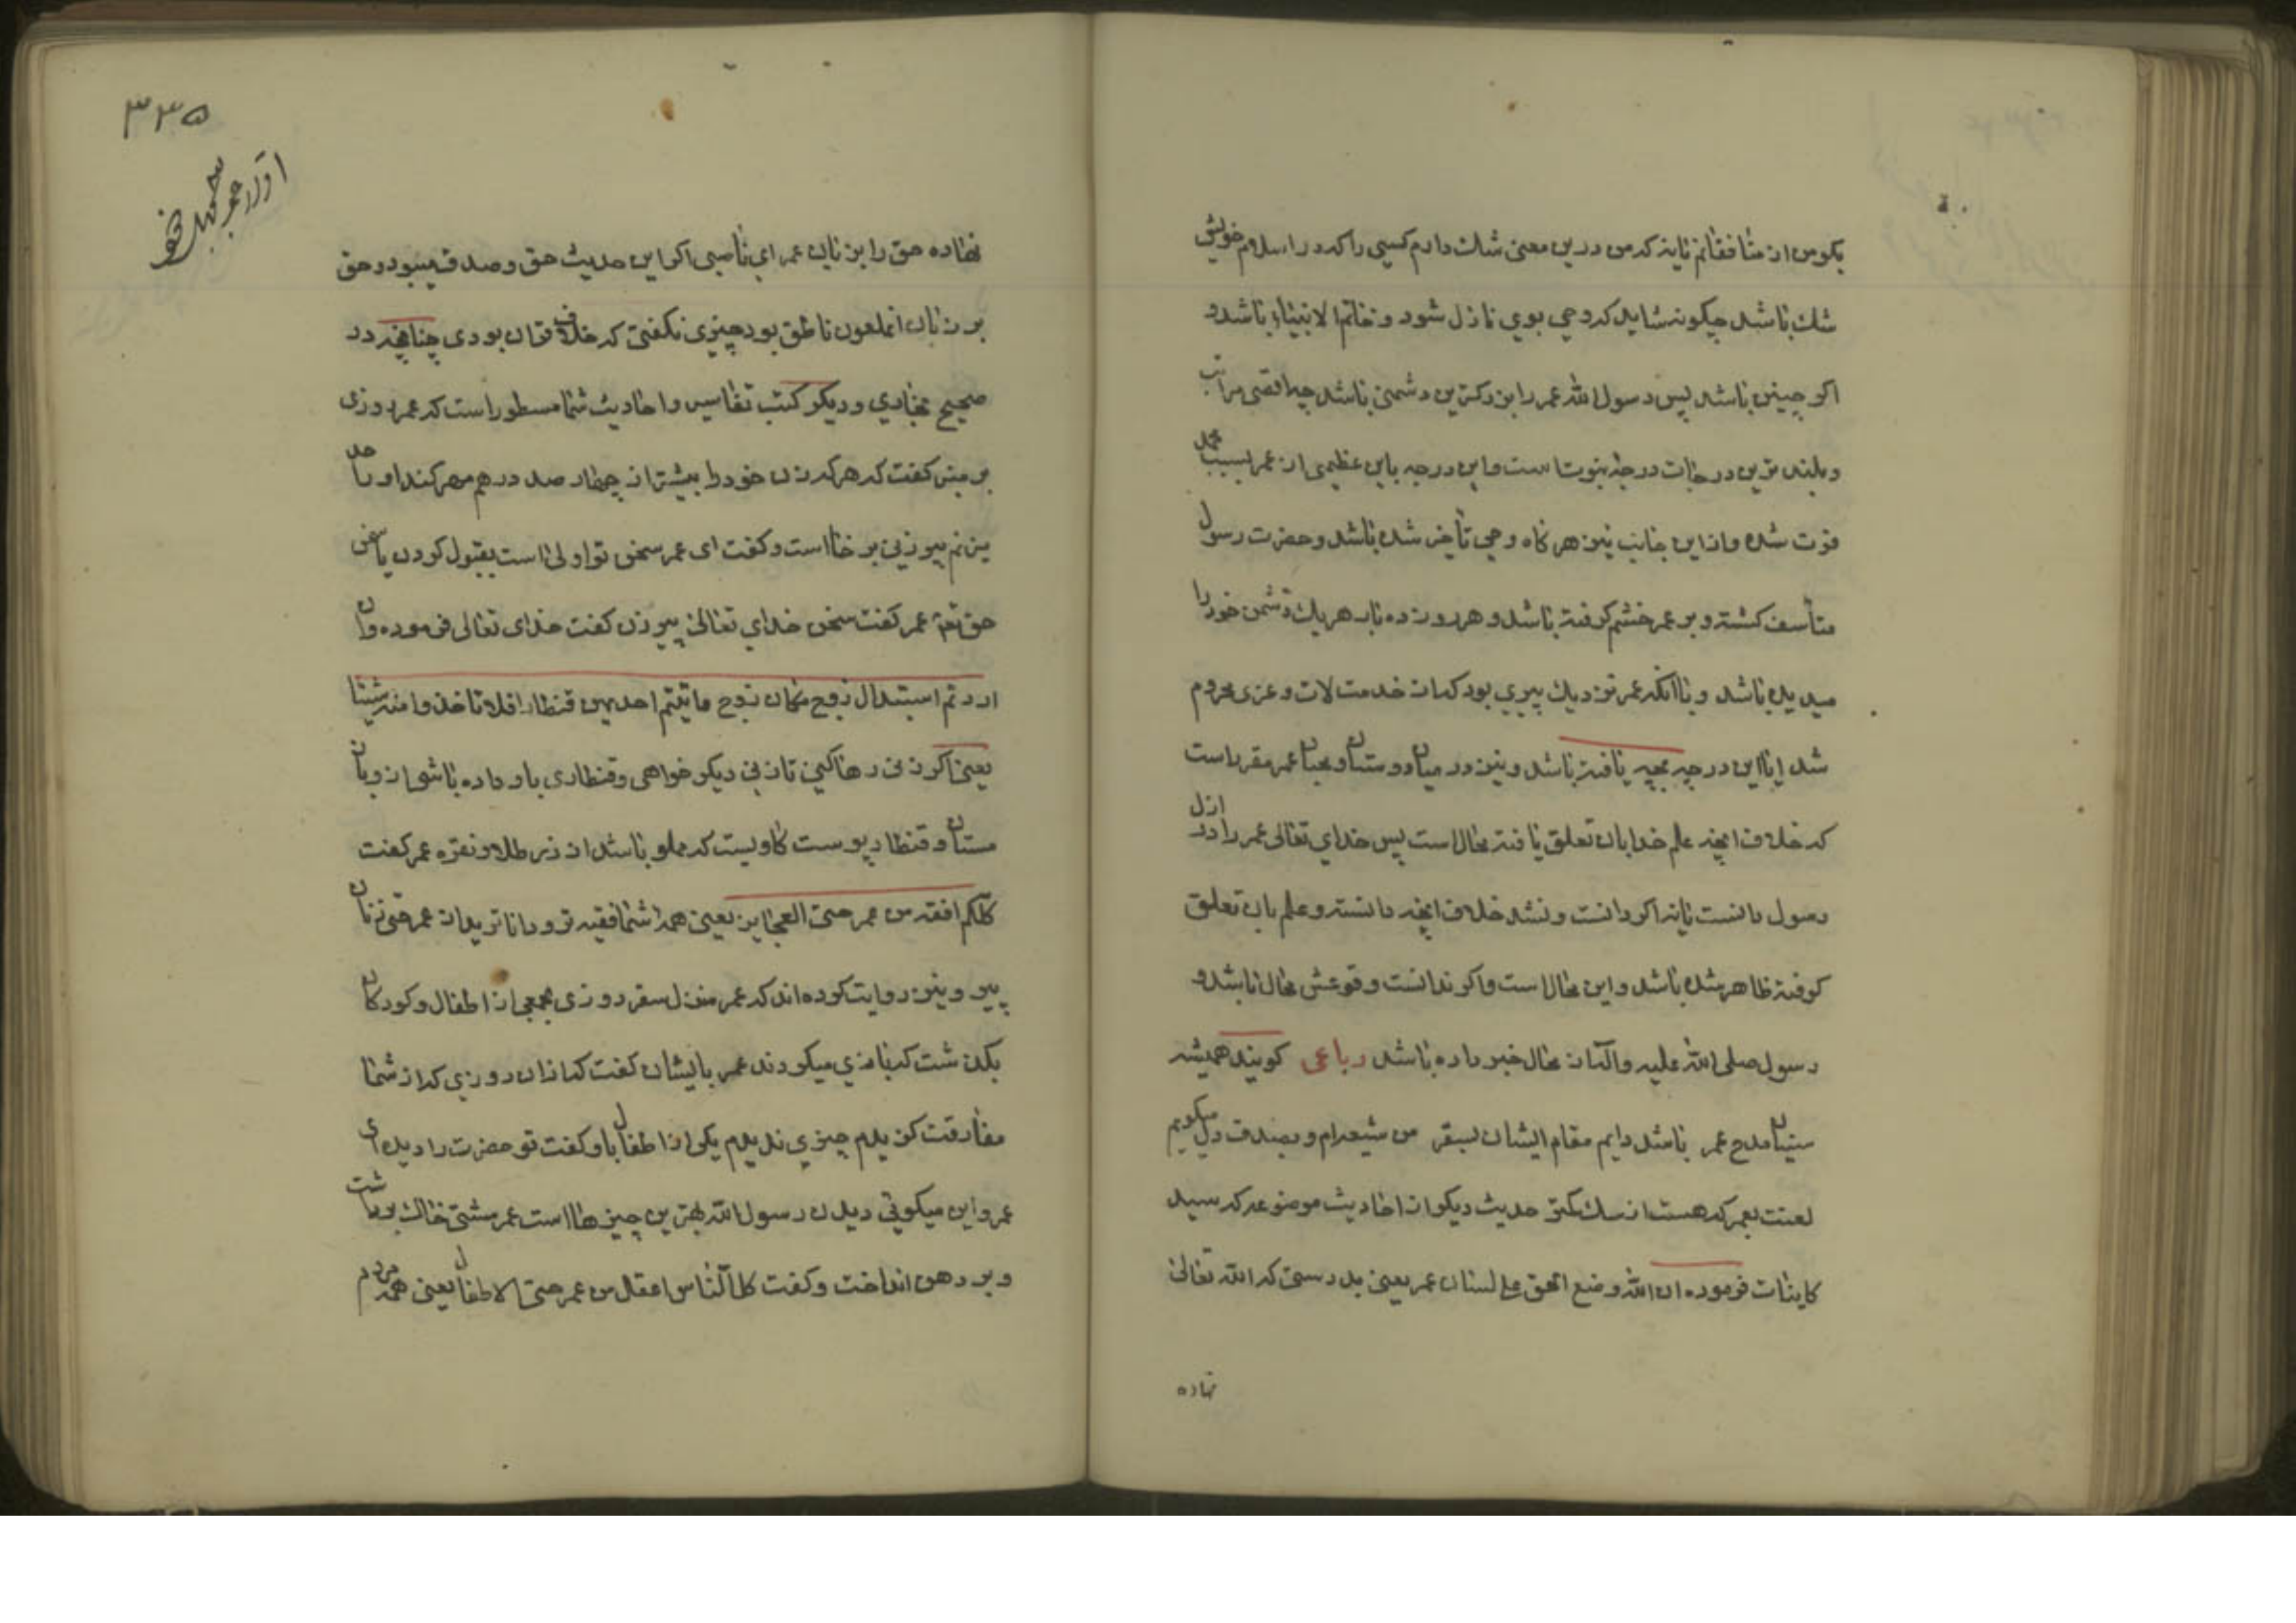 بکو من از منافقانم یا نه که من درین معنی شک دارم کسی را که در اسلام خویش
شک باشد چگونه شاید که وحی بوی نازل شود و خاتم الانبیاء باشد و
اگر چنین باشد پس رسول الله عمر را بزرکترین دشمنی باشد چه اقصی مراتب
و بلندترین درجات درجه نبوتست و این درجه باین عظیمی از عمر بسبب محمد
فوت شده و از این جانب نیز هرگاه وحی تأخیر شده باشد و حضرت رسول
متأسف کشته و بر عمر خشم کرفته باشد و هر روز ده بار هر یک دشمن خود را
میدیده باشد و با آنکه عمر نزدیک بپیری بود که از خدمت لات و عزی محروم
شد ایا این درجه بچه یافته باشد و نیز در میان دوستان و محبان عمر مقرر است
که خلاف انچه علم خدا بان تعلق یافته محال است پس خدای تعالی عمر را در ازل
رسول دانست یا نه اکر دانست و نشد خلاف انچه دانسته و علم بان تعلق
کرفته ظاهر شده باشد و این محال است و اکر ندانست وقوعش محال باشد و
رسول صلی الله علیه و آله از محال خبر داده باشد رباعی کویند همیشه
سنیان مدح عمر باشد دایم مقام ایشان بسقر من شیعه‌ام و بصدق دل میکویم
لعنت بعمر که هست از سک کمتر حدیث دیکر از احادیث موضوعه که سید
کاینات فرموده ان الله وضع الحق علی لسان عمر یعنی بدرستی که الله تعالی
نهاده
۳۳۵
نهاده حق را بر زبان عمر ای ناصبی اکر این حدیث حق و صدق میبود و حق
بر زبان انملعون ناطق بود چیزی نکفتی که خلاف قران بودی چنانچه در
صحیح بخاری و دیکر کتب تفاسیر و احادیث شما مسطور است که عمر روزی
بر منبر کفت که هر که زن خود را بیشتر از چهار صد درهم مهر کند او را حد
بزنم پیرزنی بر خاست و کفت ای عمر سخن تو اولی است بقبول کردن یا سخن
حق تعه عمر کفت سخن خدای تعالی پیرزن کفت خدای تعالی فرموده وان
اردتم استبدال زوج مکان زوج و اتیتم احدیهن قنطارا فلا تاخذوا منه شیئا
یعنی اکر زنی رها کنی تا زنی دیکر خواهی و قنطاری باو داده باشی از و باز
مستان و قنطار پوست کاویست که مملو باشد از زر طلا و نقره عمر کفت
کلکم افقه من عمر حتی العجایز یعنی همه شما فقیه تر و داناترید از عمر حتی زنان
پیر و نیز روایت کرده اند که عمر منزل سقر روزی بجمعی از اطفال و کودکان
بکذشت که بازی میکردند عمر بایشان کفت که از ان روزی که از شما
مفارقت کزیدم چیزی ندیدم یکی از اطفال باو کفت تو حضرت را دیده ای
عمر و این میکوئی دیدن رسول الله بهترین چیزهاست عمر مشتی خاک برداشت
و بر دهن انداخت و کفت کل الناس اعقل من عمر حتی الاطفال یعنی همه مردم